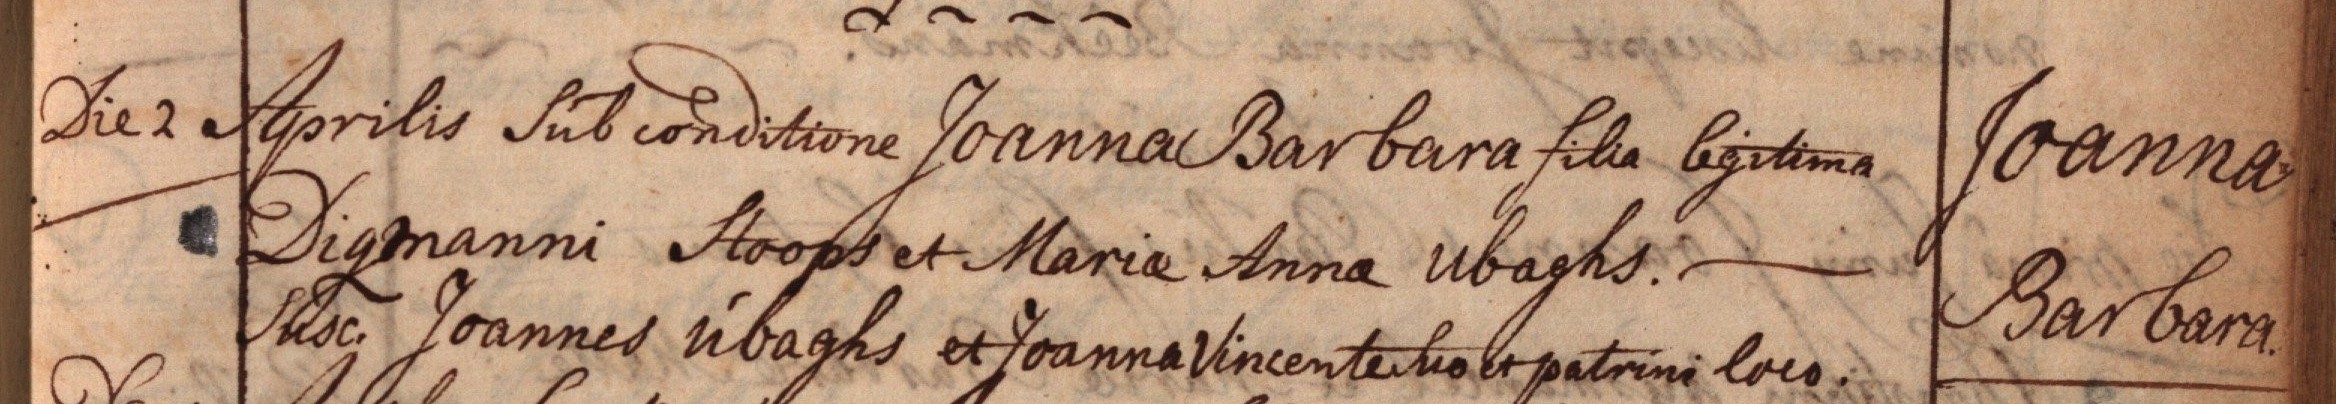 Die 2 Aprilis Sub conditione Joanna Barbara filia legitima
Digmanni Stoops et Mariæ Annæ Ubaghs.
Susc. Joannes Ubaghs et Joanna Vincente suo et patrini loco.
Joanna
Barbara.